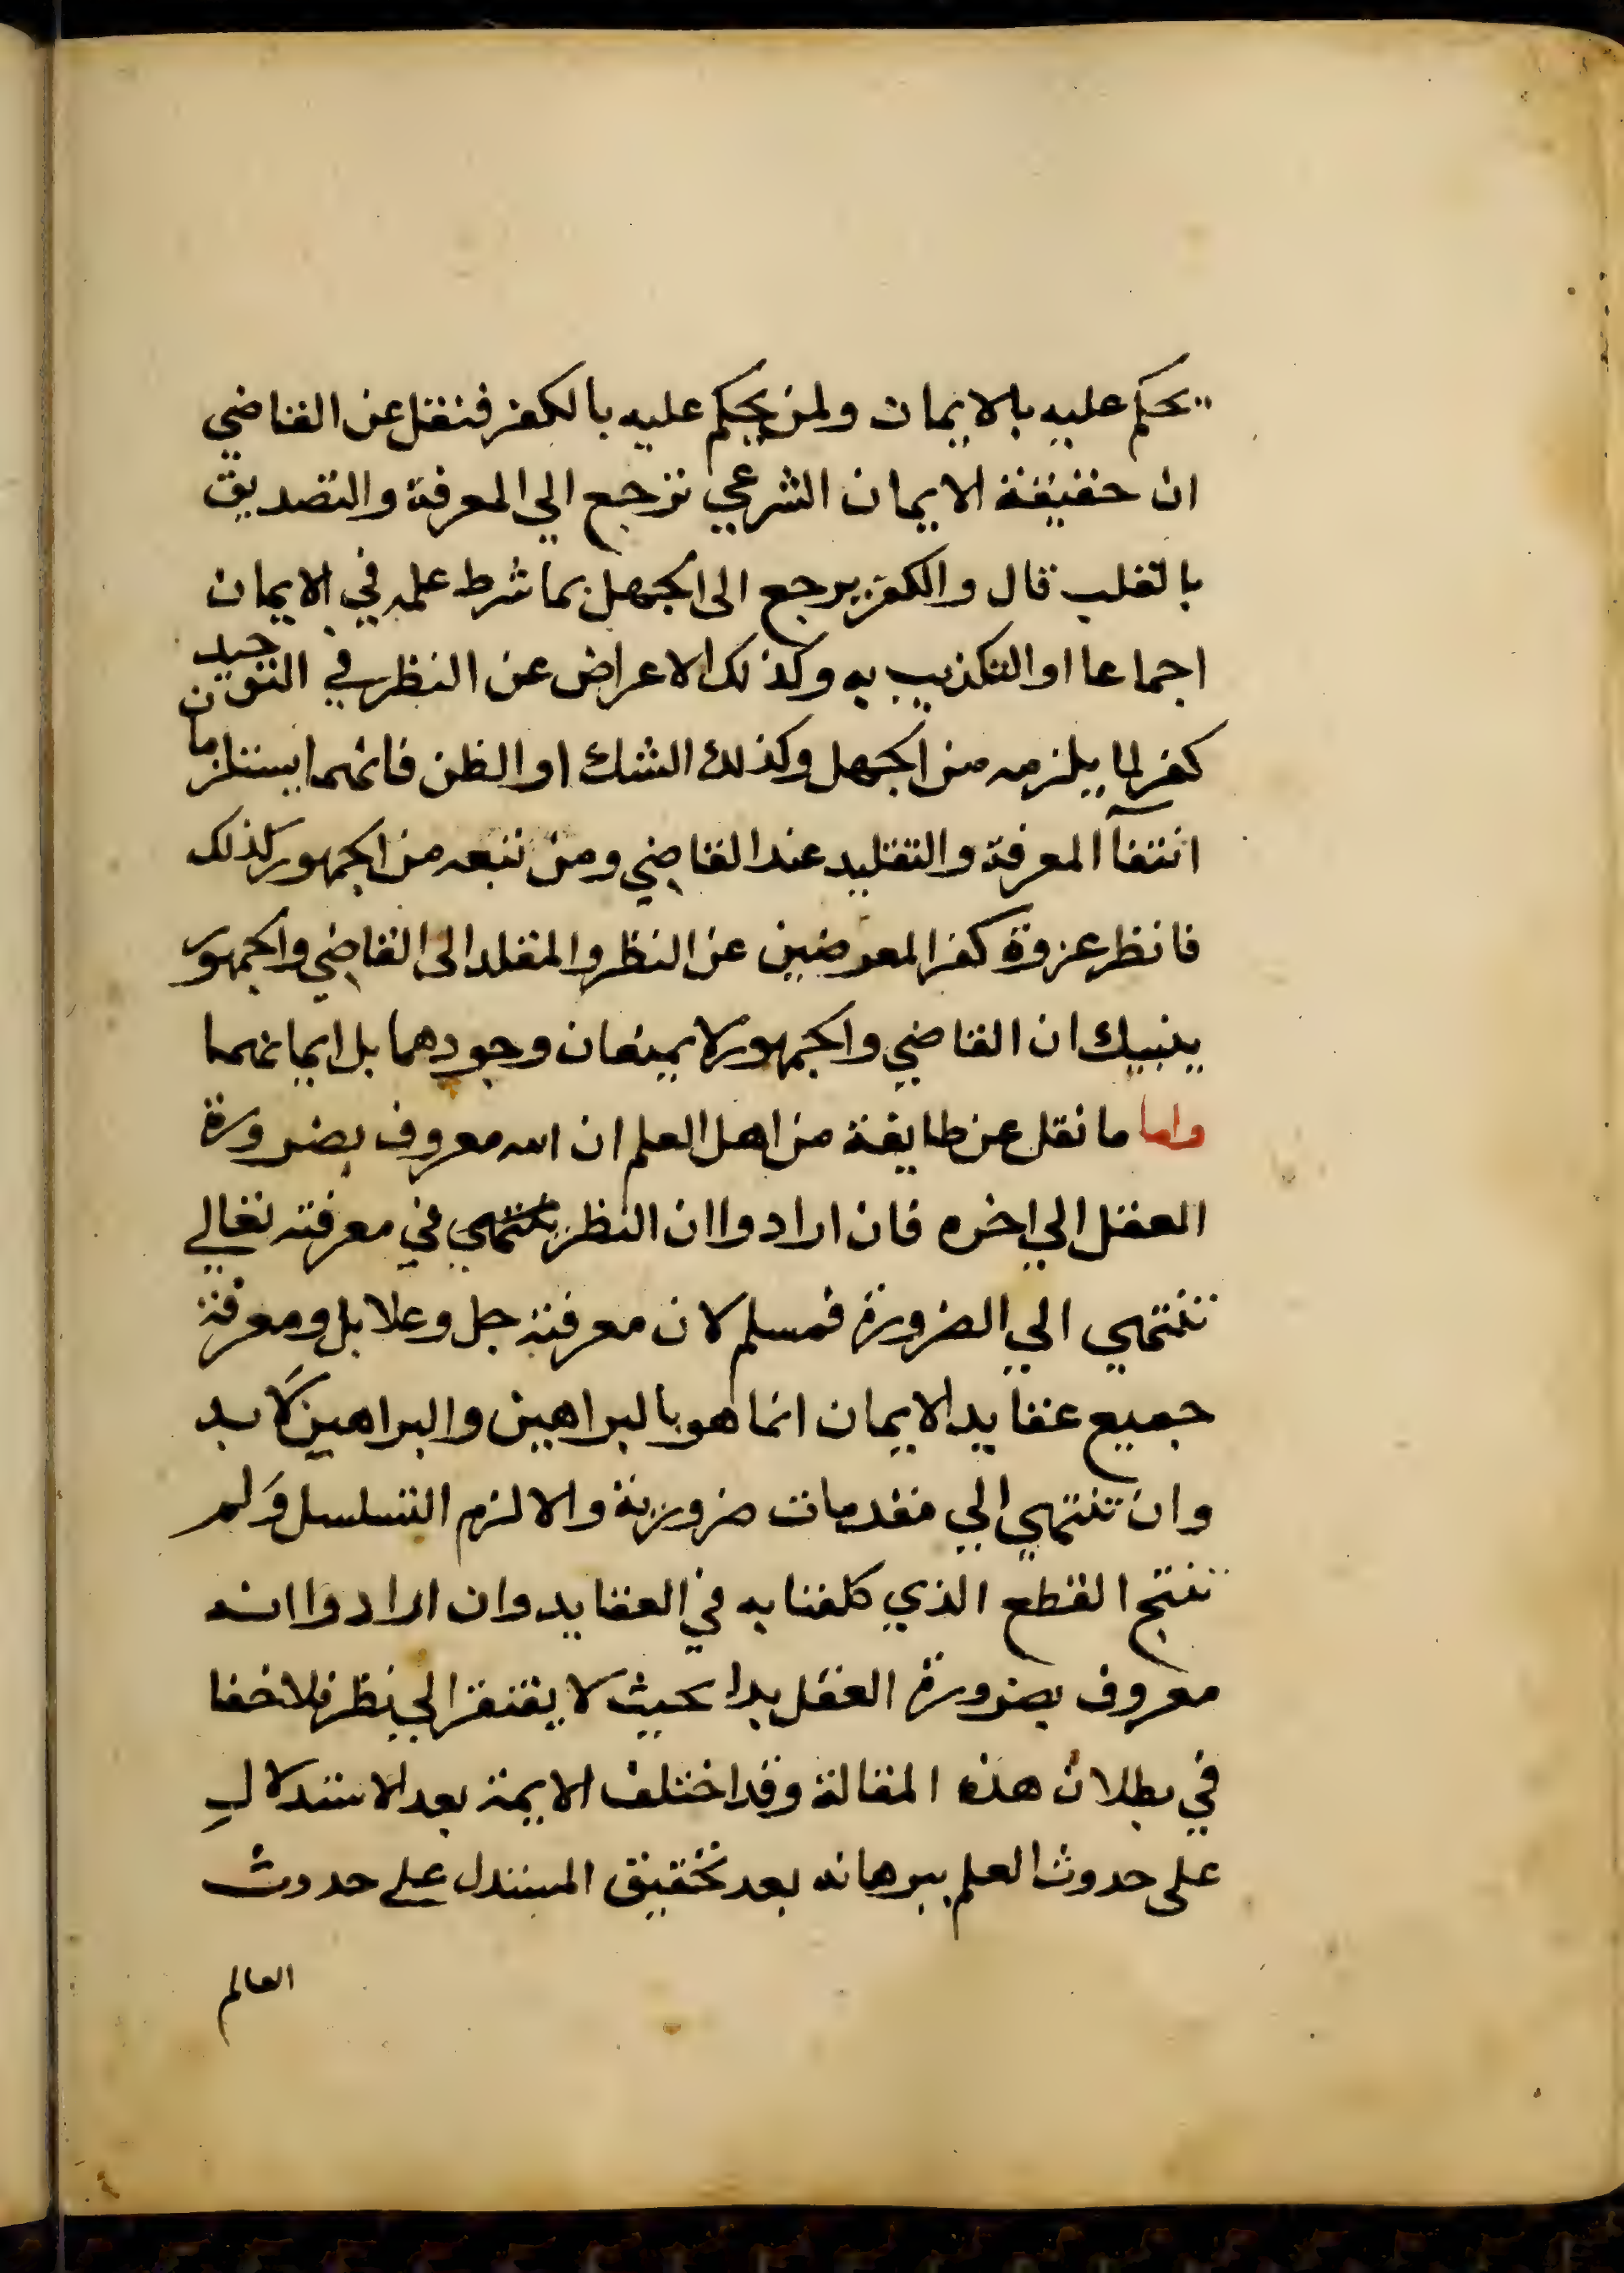 يحكم عليه بالايمان ولمن يحكم عليه بالكفر فنقل عن القاضي
ان حقيقة الايمان الشرعي ترجع الي المعرفة والتصديق
بالقلب قال والكفر يرجع الى الجهل بما شرط علمه في الايمان
اجماعا او التكذيب به وكذلك الاعراض عن النظر في التوحيد
كفر لما يلزمه من الجهل وكذلك الشك او الظن فانهما يستلزمان
انتفآ المعرفة والتقليد عند القاضي ومن تبعه من الجمهور كذلك
فانظر عزوه كفر المعرضين عن النظر والمقلد الى القاضي والجمهور
ينبيك ان القاضي والجمهور لا يمنعان وجودهما بل ايمانهما
واما ما نقل عن طايفة من اهل العلم ان الله معروف بضرورة
العقل الي اخره فان ارادوا ان النظر في معرفته تعالي
تنتهي الي الضرورة فمسلم لان معرفته جل وعلا بل ومعرفة
جميع عقايد الايمان انما هو بالبراهين والبراهين لا بد
وان تنتهي الي مقدمات ضرورية والا لزم التسلسل ولم
تنتج القطع الذي كلفنا به في العقايد وان ارادوا انه
معروف بضرورة العقل بدا بحيث لا يفتقر الي نظر فلا خفا
في بطلان هذه المقالة وقد اختلف الايمة بعد الاستدلال
على حدوث العلم ببرهانه بعد تحقيق المستدل علي حدوث
العالم